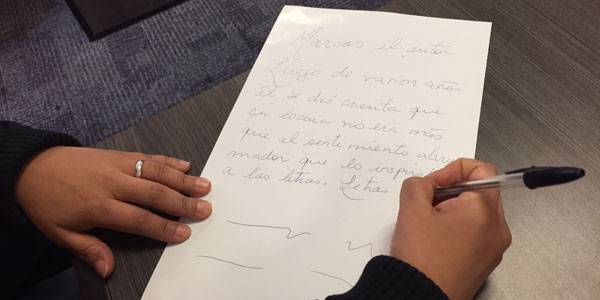 Marcos el autor
Luego de varios años
él se dió cuenta que
su locura no era más
que el sentimiento abru
mador que lo inspira
a las letras. Letras